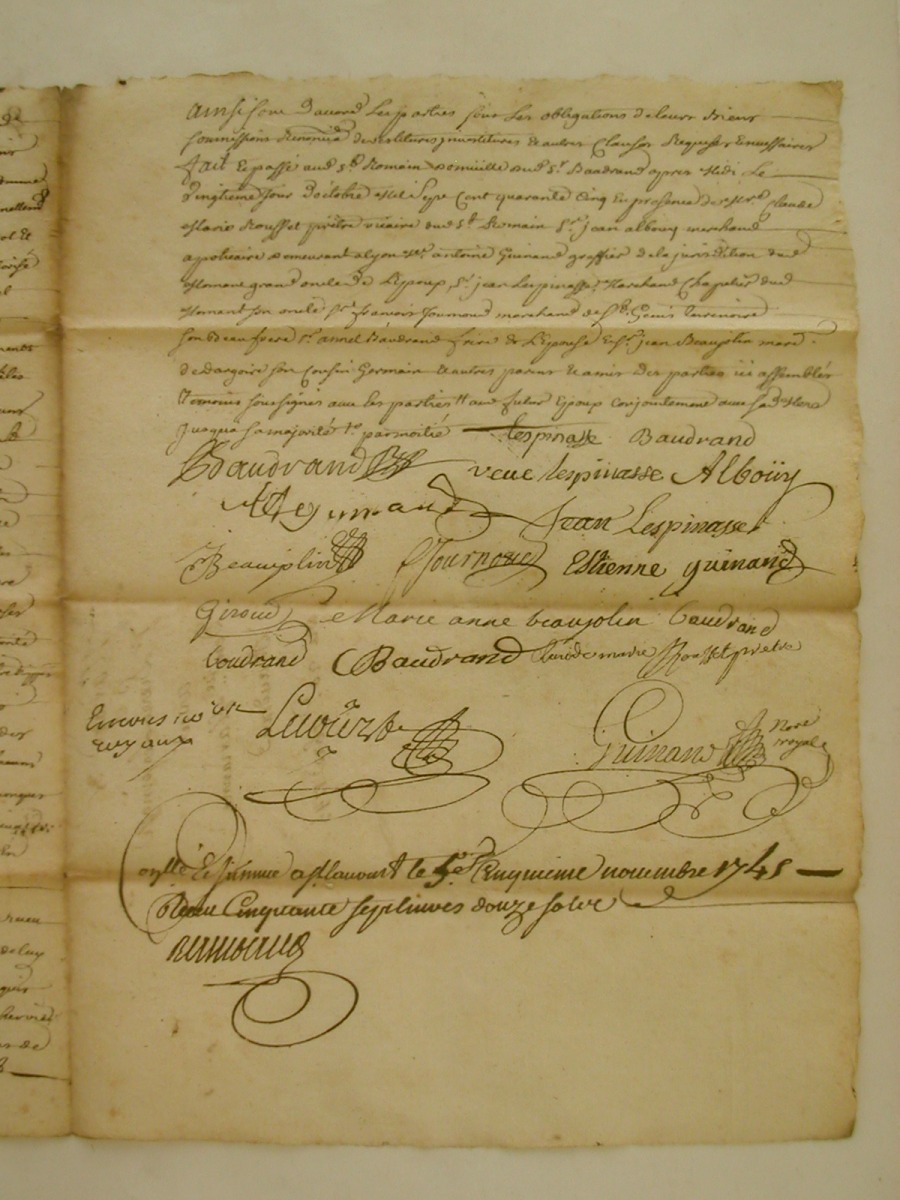 ainsi sont d'accord les parties sous les obligations de leurs biens
soumissions renonciã de estitures investitures & autres clauses requises & necessaires
fait & passé aud St Romain domicille dud Sr Baudrand apres midi le
vingtieme jour d'octobre mil sept cent quarante cinq en presence de Mre Claude
Marie Rousset prêtre vicaire dud St Romain Sr jean alboüy marchand
apoticaire demeurant a lyon Me antoine Guinand greffier de la jurisdition dud
Mornant grand oncle de L'epoux Sr jean Lespinasse Marchand Chapelier dud
Mornant son oncle Sr francois Journoud marchand de St Genis terrenoire
son beau frere Sr annet Baudrand frere de L'epouse & Sr jean Beaujolin mard
de dargoire son Cousin Germain & autres parens & amis des parties ici assemblés
Temoins soussignés avec les parties aud futur Epoux conjointement avec sad Mere
jusqua sa majorité par moitié Lespinasse Baudrand
Baudrand veue Lespinasse Alboüy
Jean Lespinasse
Beaujolin Journoud Estienne guinand
Giroud Marie anne beaujolin baudrand
boudrand Baudrand Claude marie Rousset prêtre
Guinand Nore
royal
Conllé & insinué a St laurent le 5e Cinquieme novembre 1745
Receu Cinquante sept livres douze sols